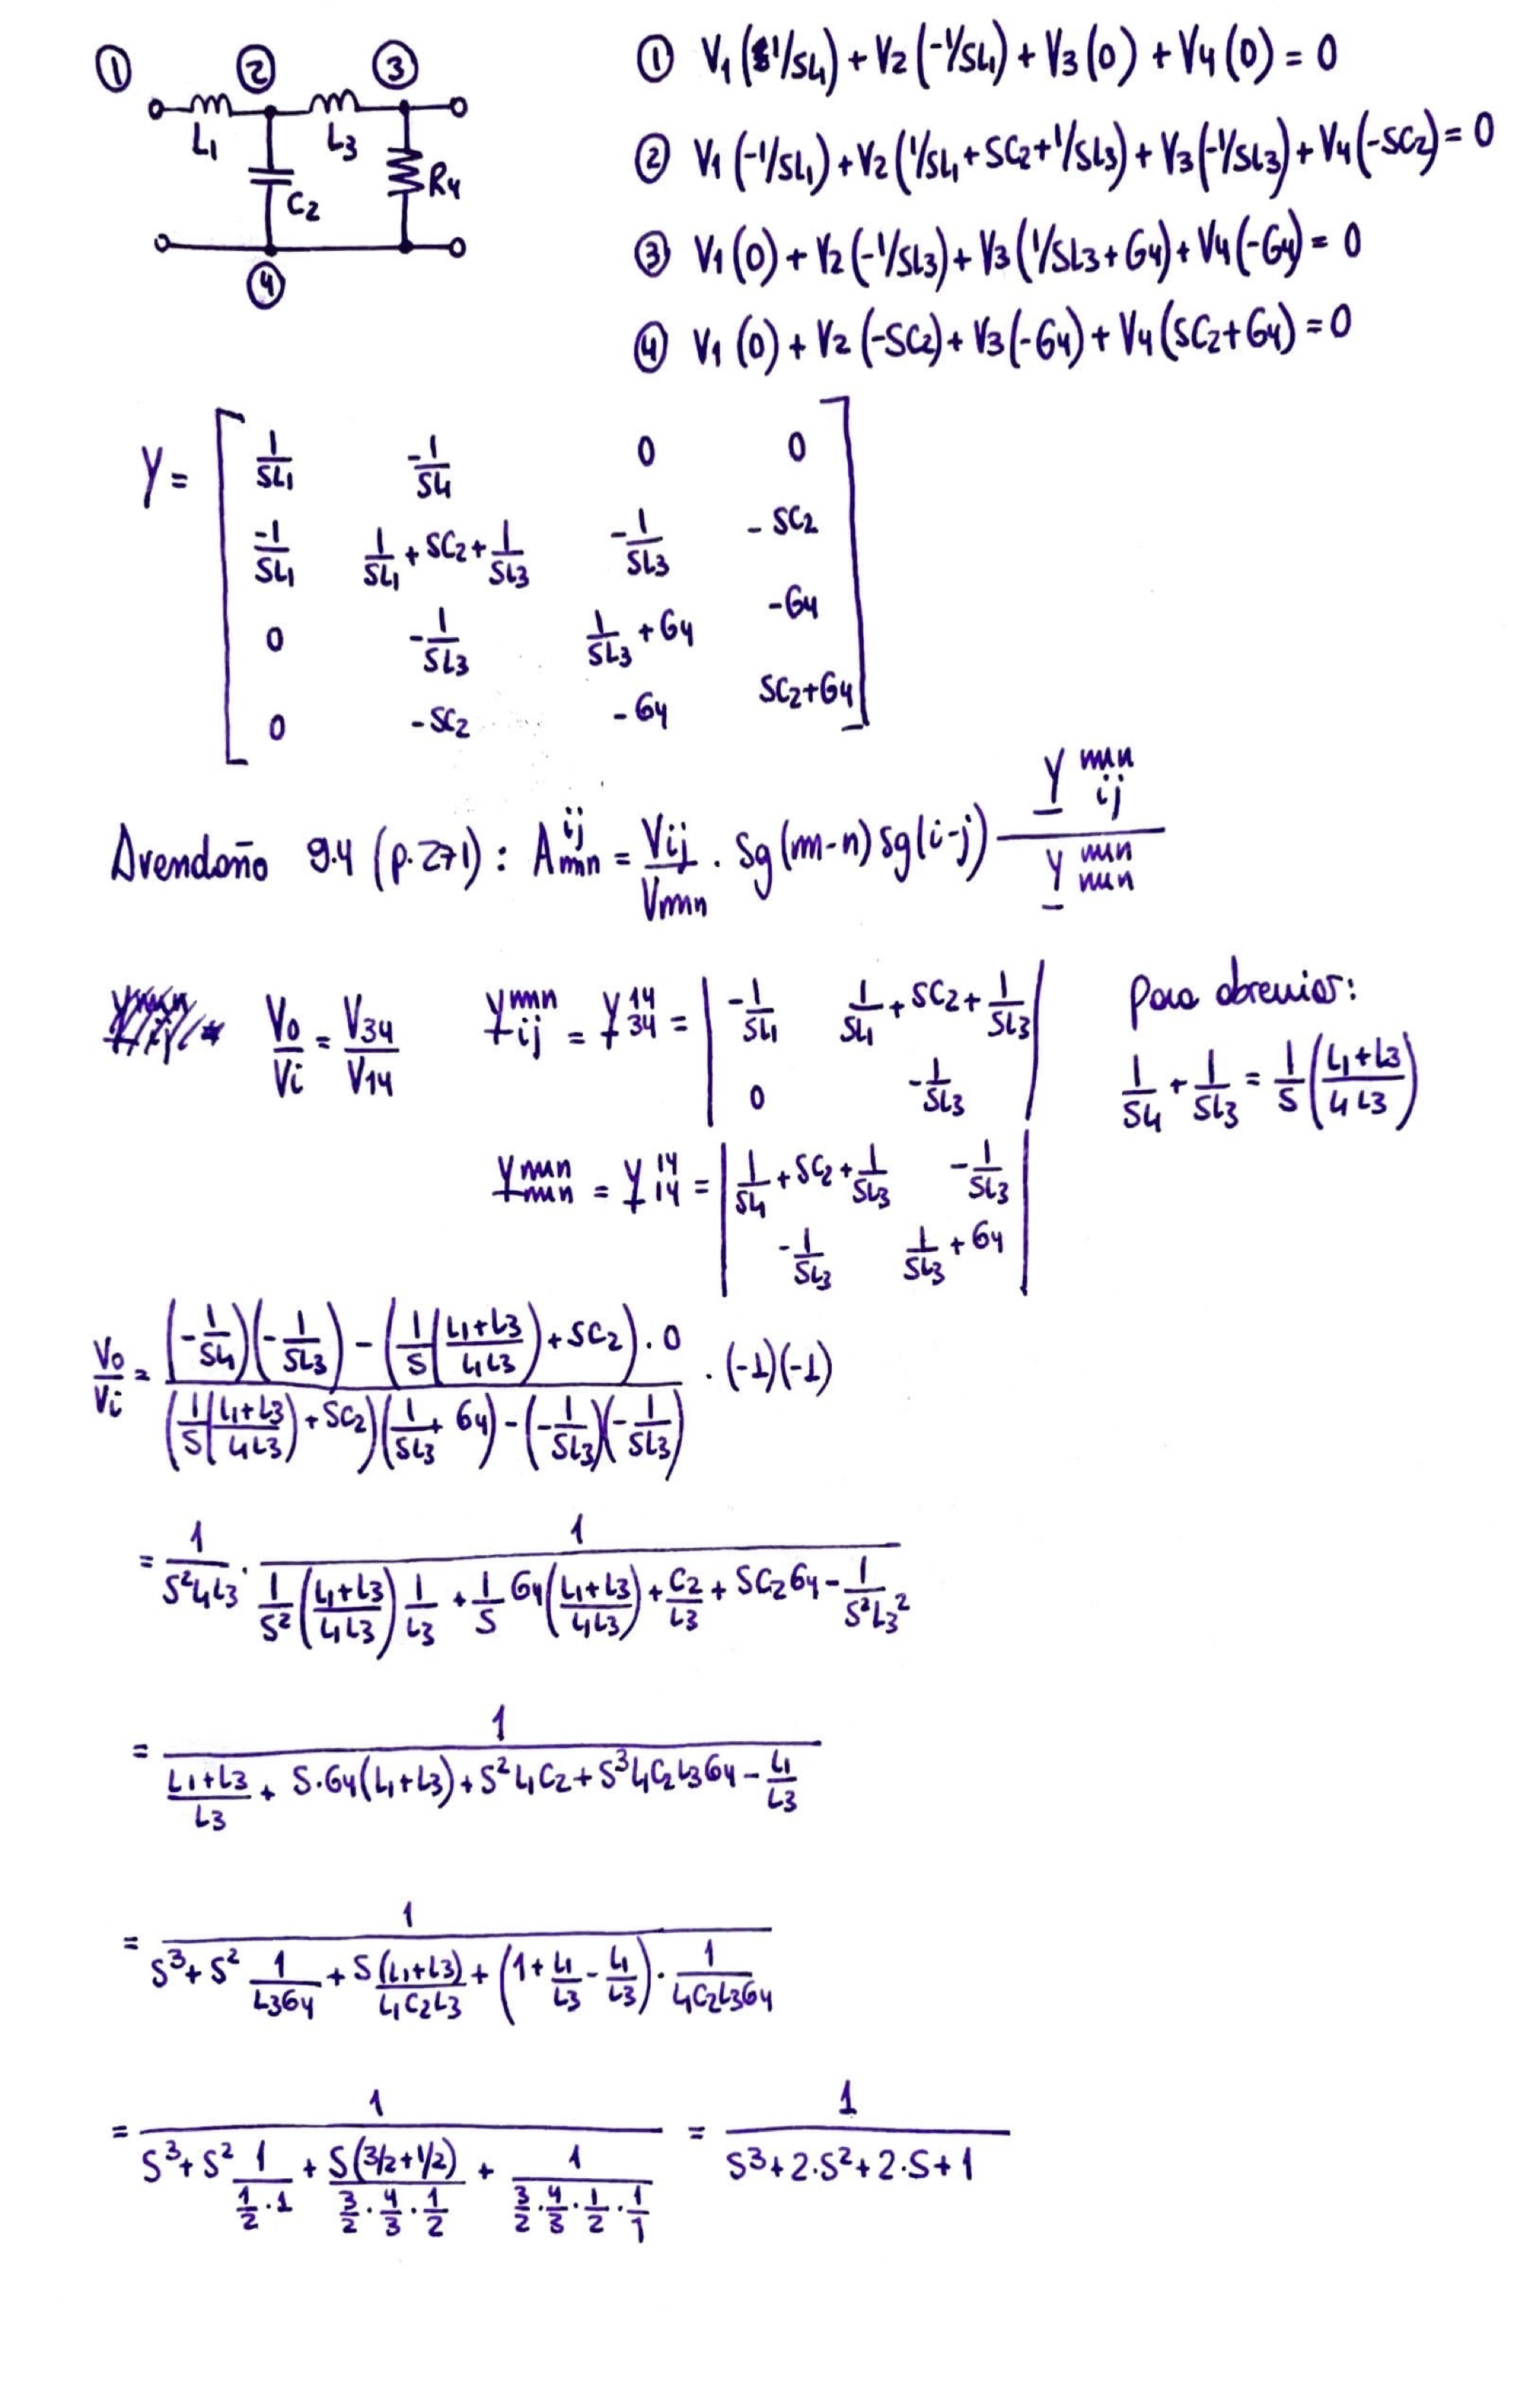 ① ② ③
L1 L3
C2 R4
④
① V1(1/SL1) + V2(-1/SL1) + V3(0) + V4(0) = 0
② V1(-1/SL1) + V2(1/SL1 + SC2 + 1/SL3) + V3(-1/SL3) + V4(-SC2) = 0
③ V1(0) + V2(-1/SL3) + V3(1/SL3 + G4) + V4(-G4) = 0
④ V1(0) + V2(-SC2) + V3(-G4) + V4(SC2+G4) = 0
Y = [ 1/SL1 -1/SL1 0 0
-1/SL1 1/SL1 + SC2 + 1/SL3 -1/SL3 -SC2
0 -1/SL3 1/SL3 + G4 -G4
0 -SC2 -G4 SC2+G4 ]
Avendaño 9.4 (p.271): A^ij_mn = Vij/Vmn . Sg(m-n) Sg(i-j) Y^mn_ij / Y^mn_mn
Vo/Vi = V34/V14 Y^mn_ij = Y^14_34 = | -1/SL1 1/SL1 + SC2 + 1/SL3 |
| 0 -1/SL3 |
Para abreviar:
1/SL1 + 1/SL3 = 1/S (L1+L3 / L1L3)
Y^mn_mn = Y^14_14 = | 1/SL1 + SC2 + 1/SL3 -1/SL3 |
| -1/SL3 1/SL3 + G4 |
Vo/Vi = [(-1/SL1)(-1/SL3) - (1/S(L1+L3 / L1L3) + SC2).0] / [(1/S(L1+L3 / L1L3) + SC2)(1/SL3 + G4) - (-1/SL3)(-1/SL3)] . (-1)(-1)
= 1/S²L1L3 . 1 / [1/S² (L1+L3 / L1L3) 1/L3 + 1/S G4(L1+L3 / L1L3) + C2/L3 + SC2G4 - 1/S²L3²]
= 1 / [L1+L3 / L3 + S.G4(L1+L3) + S²L1C2 + S³L1C2L3G4 - L1/L3]
= 1 / [S³ + S² 1/L3G4 + S(L1+L3)/L1C2L3 + (1 + L1/L3 - L1/L3) . 1/L1C2L3G4]
= 1 / [S³ + S² 1/(1/2 . 1) + S(3/2+1/2)/(3/2 . 4/3 . 1/2) + 1/(3/2 . 4/3 . 1/2 . 1/1)] = 1 / [S³ + 2.S² + 2.S + 1]